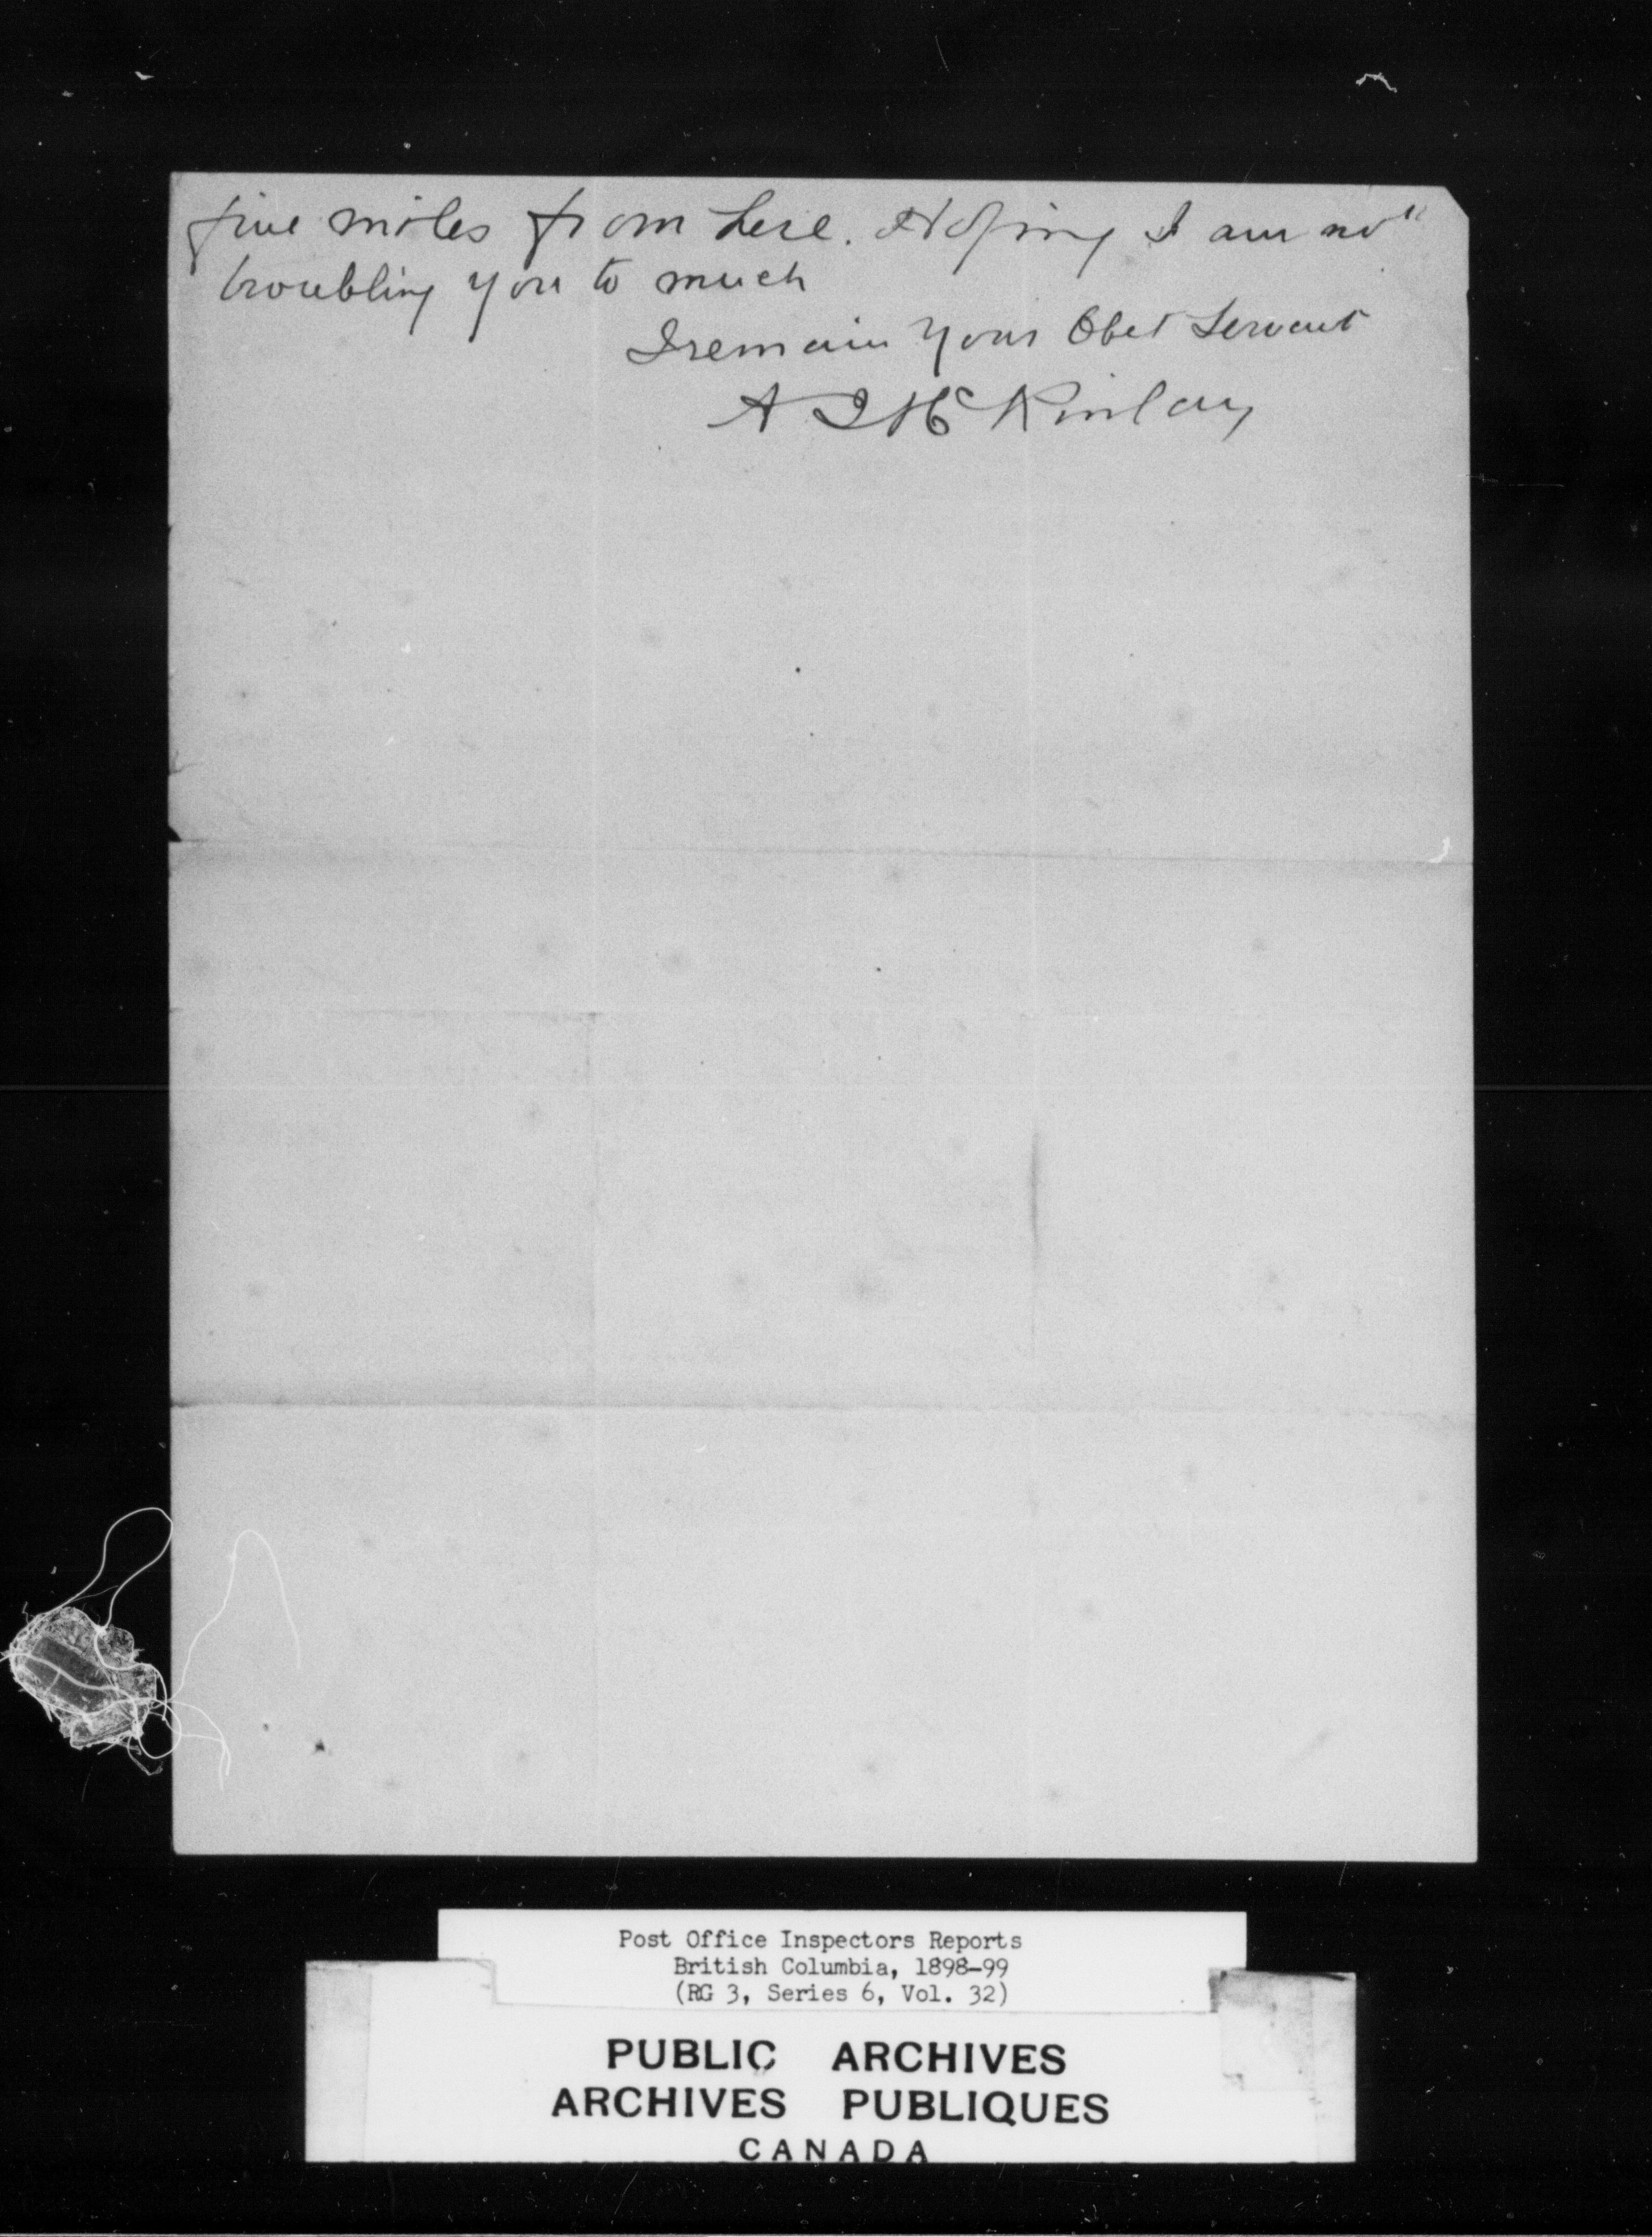 five miles from here. Hoping I am not
troubling you to much
I remain Your Obet Servant
A I McKinlay
Post Office Inspectors Reports
British Columbia, 1898-99
(RG 3, Series 6, Vol. 32)
PUBLIC ARCHIVES
ARCHIVES PUBLIQUES
CANADA